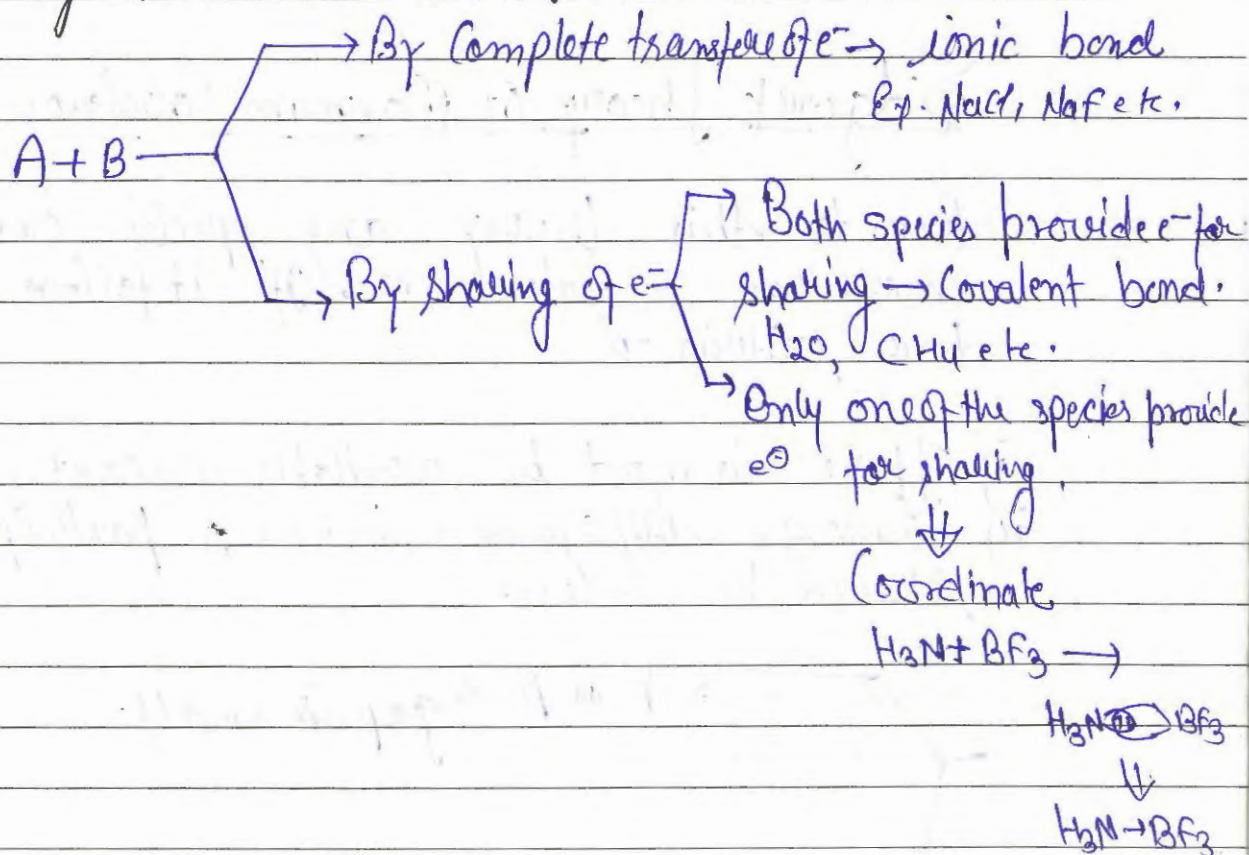 By Complete transfere of e⁻ → ionic bond
Ex. NaCl, NaF etc.
A + B
Both species provide e⁻ for
→ By sharing of e⁻ sharing → Covalent bond.
H2O, CH4 etc.
Only one of the species provide
e⊖ for sharing.
⇓
Coordinate
H3N + BF3 →
H3N BF3
⇓
H3N → BF3